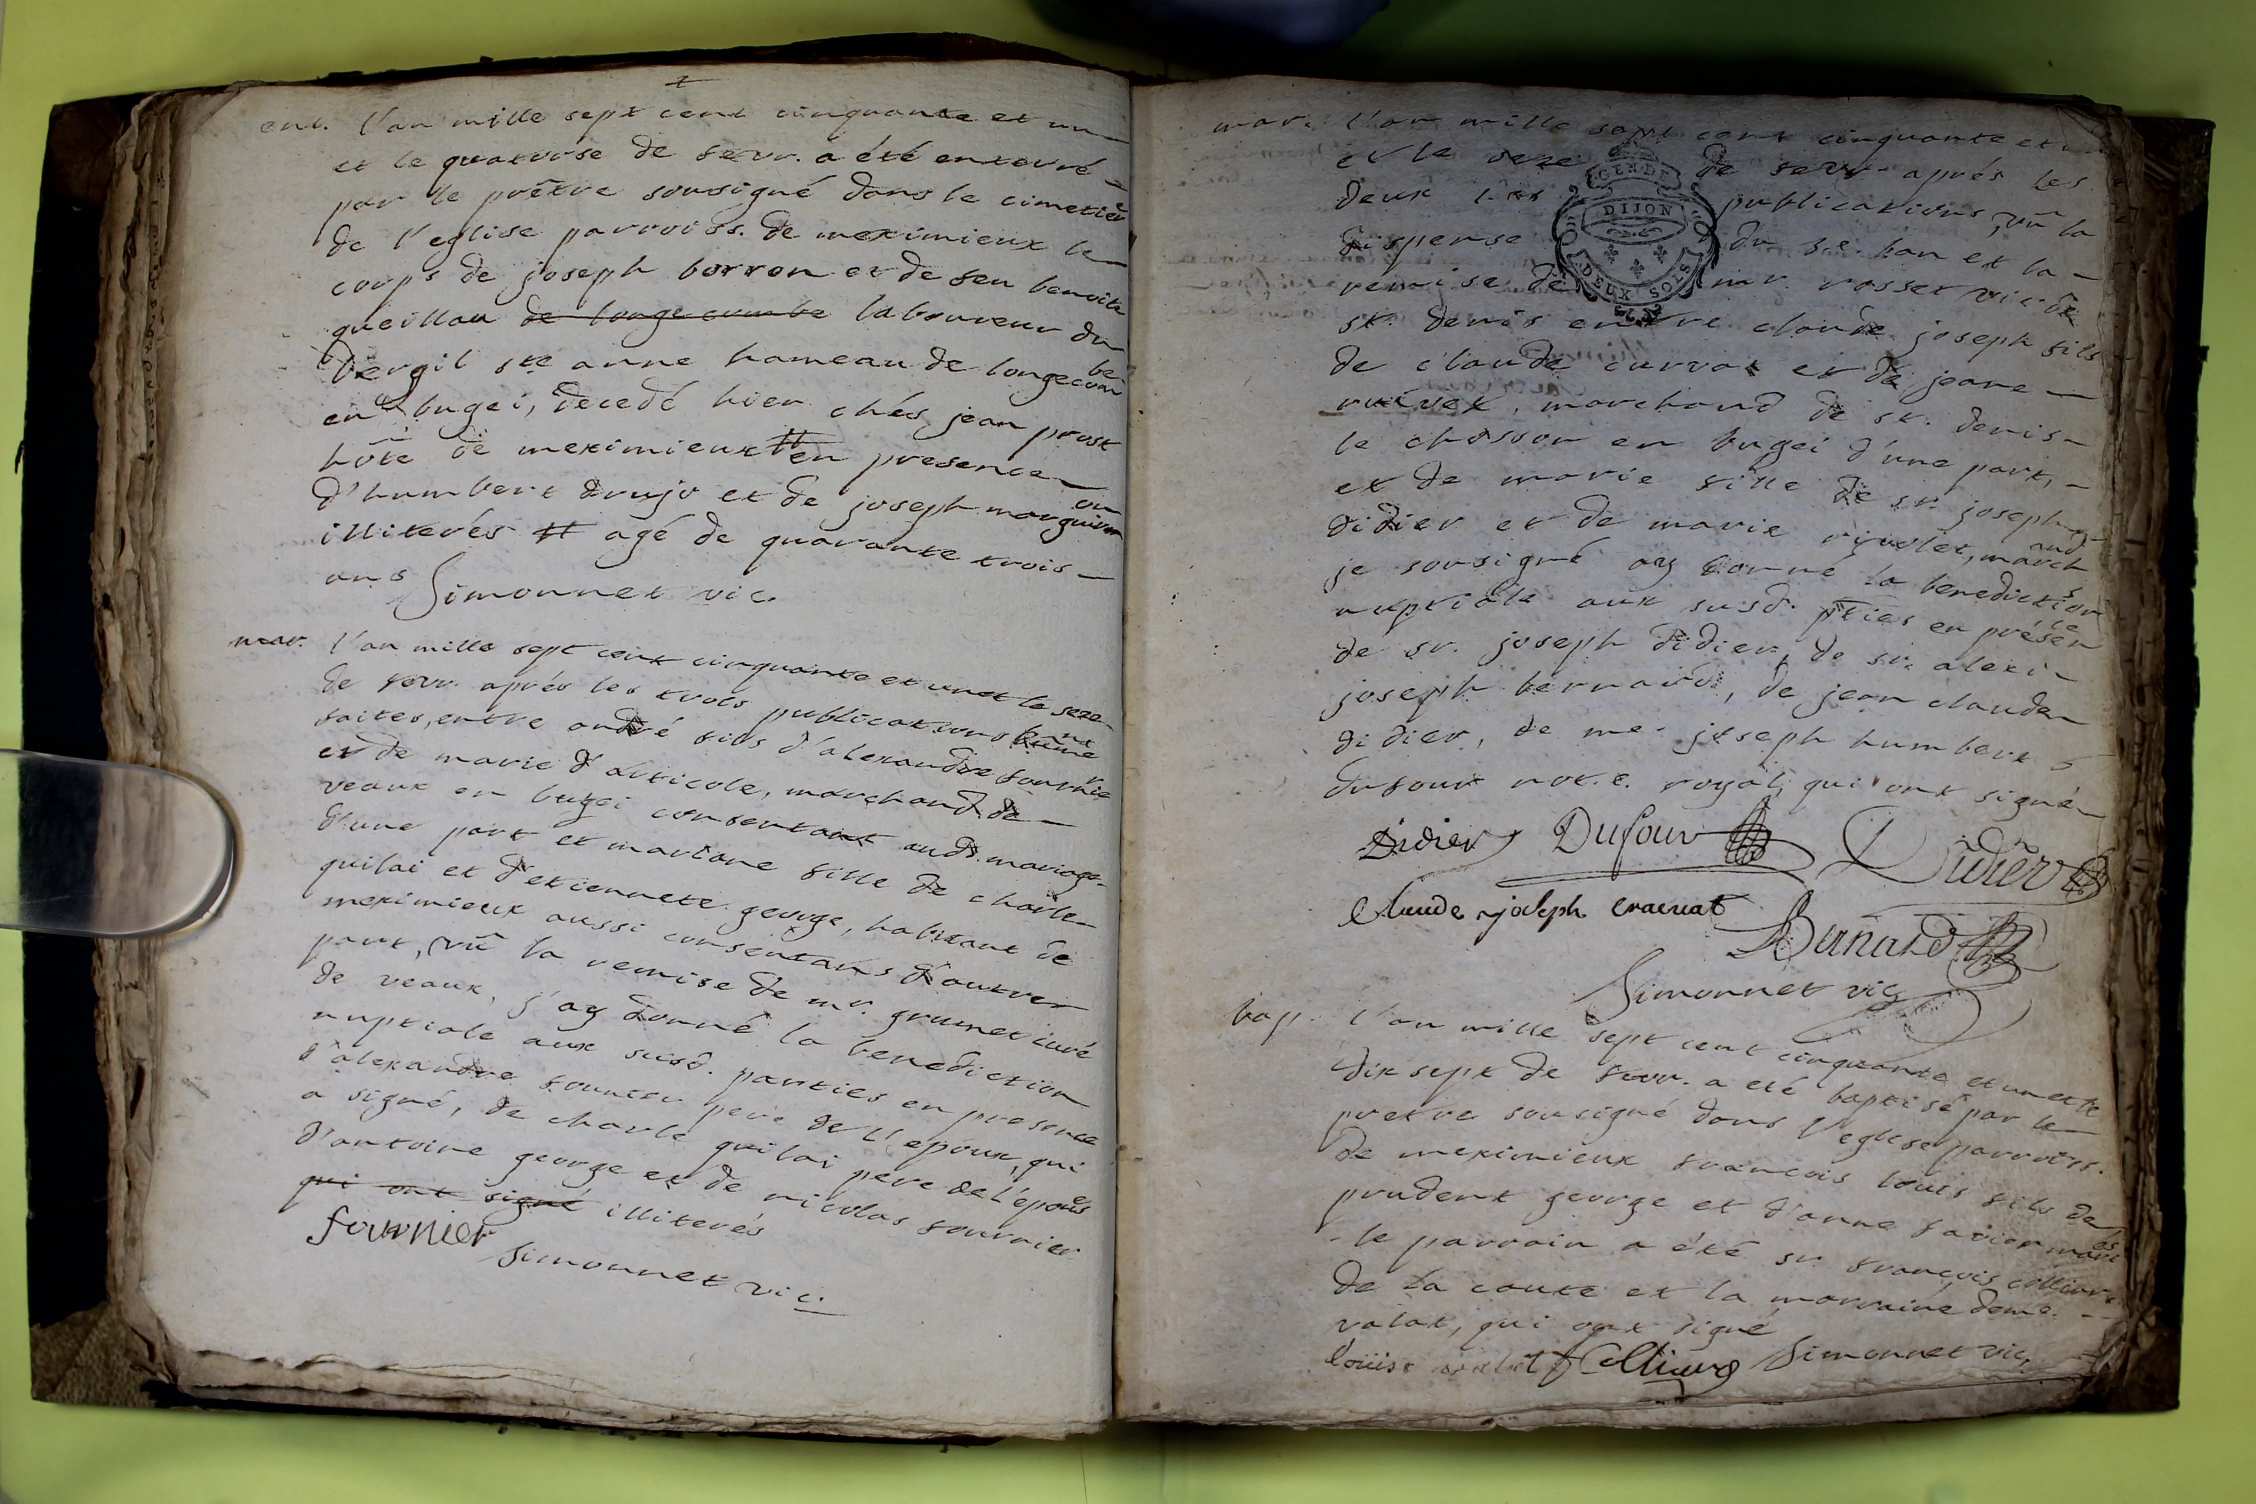 ent. l'an mille sept cent cinquante et un
et le quatorse de fevr. a été enterré
par le prêtre sousigné dans le cimetiere
de l'eglise parroiss. de meximieux le
corps de joseph borron et de feu benoite
queillau de longe combe laboureur du
Vergil ste anne hameau de longecombe
en bugei, decedé hier chés jean prost
hôte de meximieux # en presence
d'humbert drujo et de joseph marguiron
illiterés # agé de quarante trois
ans Simonnet vic.
mar. l'an mille sept cent cinquante et un et le seze
de fevr. aprés les trois publications
faites, entre andré fils d'alexandre fournie
et de marie d'alticole, marchand de
veaux en bugei consentant aud. mariage
d'une part et mariane fille de charle
quilai et d'etiennete george, habitant de
meximieux aussi consentans d'autre
part, vû la remise de mr. grumet curé
de veaux, j'ay donné la benediction
nuptiale aux susd. parties en presence
d'alexandre fournier pere de l'epoux, qui
a signé, de charle quilai pere de l'epouse
d'antoine george et de nicolas fournier
qui ont signé illiterés
fournier
Simonnet vic.
mar. l'an mille sept cent cinquante et un
et le seze de fevr. aprés les
deux publications, vû la
dispense du 3e. ban et la
remise de mr. rosset vic. de
st. denis entre claude joseph fils
de claude curvat et de jeane
ruivet, marchand de st. denis
le chosson en bugei d'une part,
et de marie fille de sr. joseph
didier et de marie rigolet, marchand
je sousigné ay donné la benediction
nuptiale aux susd. pties en présence
de sr. joseph didier, de sr. alexi
joseph bernard, de jean claude
didier, de me. joseph humbert
dufour not.e. royal, qui ont signé
Didier Dufour Didier
Claude joseph cracuat
Bernard
Simonnet vic
bap. l'an mille sept cent cinquante et un et le
dix sept de fevr. a eté baptisé par le
pretre sousigné dans l'eglise parroiss.
de meximieux francois louis fils de
prudent george et d'anne favier mariés
le parrain a été sr. françois collieux
de la coute et la marraine deme.
valat, qui ont signé
Louise valat f Collieux Simonnet vic.
GEN DE
DIJON
DEUX SOLS